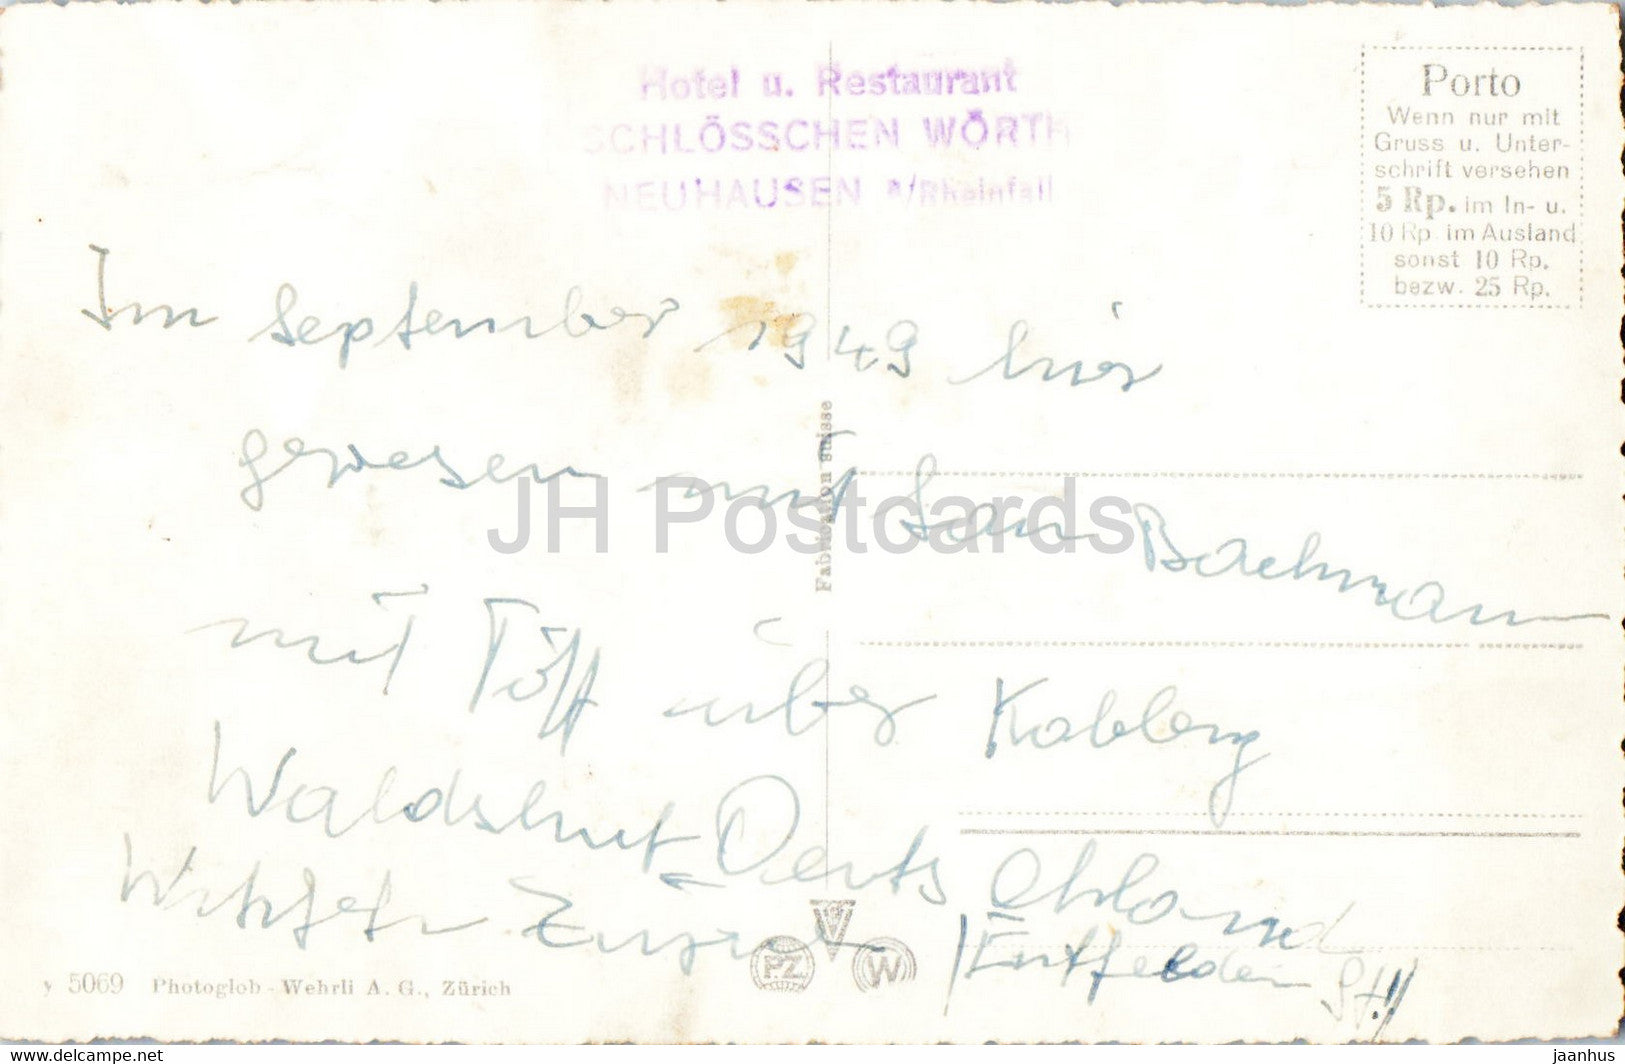 Hotel u. Restaurant
SCHLÖSSCHEN WÖRTH
NEUHAUSEN a/Rheinfall
Porto
Wenn nur mit
Gruss u. Unter-
schrift versehen
5 Rp. im In- u.
10 Rp. im Ausland
sonst 10 Rp.
bezw. 25 Rp.
Im September 1949 hier
gewesen mit Bachmann
mit Töff über Koblenz
Waldshut
Entfelden
Fabrication suisse
JH Postcards
PZ
W
y 5069 Photoglob-Wehrli A. G., Zürich
www.delcampe.net
jaanhus